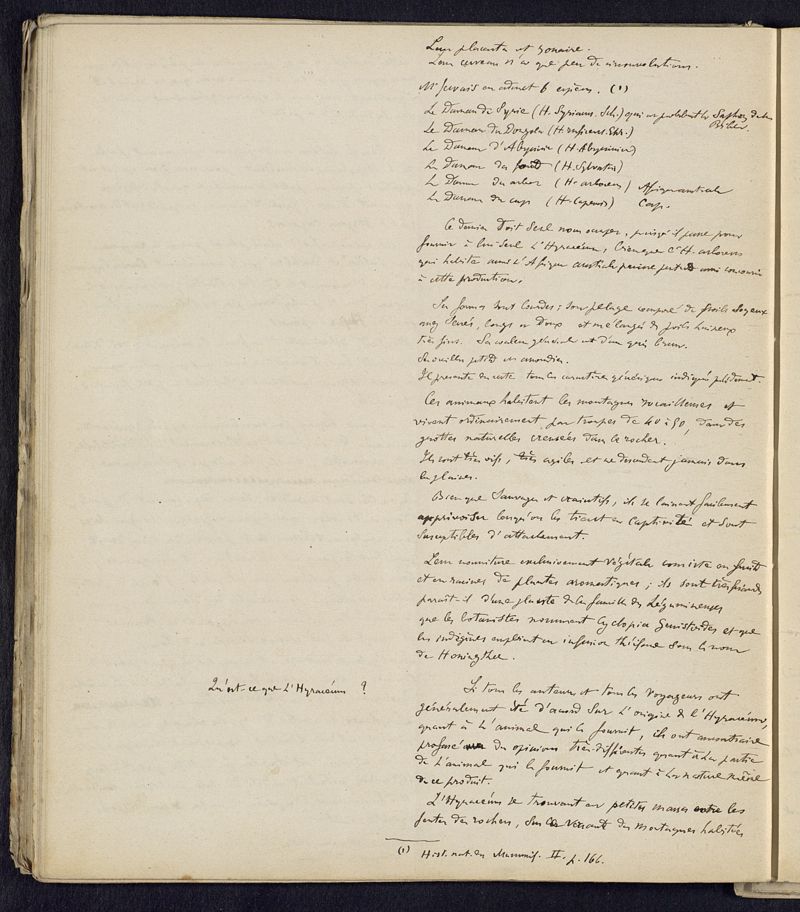 Leur placenta est zonaire.
Leur cerveau n'a que peu de circonvolutions.
Mr Gervais en admet 6 espèces. (1)
Le Daman de Syrie (H. Syriacus. Sch.) qui est probablement le Saphan de la
Bible.
Le Daman du Dongola (H. ruficeps. Ehr.)
Le Daman d'Abyssinie (H. Abyssinicus)
Le Daman des (H. Sylvestris)
Le Daman des arbres (H. arboreus) Afrique australe
Le Daman du cap (H. Capensis) Cap.
Ce dernier doit seul nous occuper, puisqu'il passe pour
fournir à lui seul l'Hyraceum, bien que l'H. arboreus
qui habite aussi l'Afrique australe puisse peut-être aussi concourir
à cette production.
Ses formes sont lourdes; son pelage composé de poils soyeux
assez serrés, longs et doux est mélangé de poils laineux
très fins. Sa couleur générale est d'un gris brun.
Ses oreilles petites et arrondies.
Il présente du reste tous les caractères génériques indiqués précédemment.
Ces animaux habitent les montagnes rocailleuses et
vivent ordinairement par troupes de 40 à 50, dans des
grottes naturelles creusées dans le rocher.
Ils sont très vifs, très agiles et ne descendent jamais dans
les plaines.
Bien que sauvages et craintifs, ils se laissent facilement
apprivoiser lorsqu'on les tient en captivité et sont
susceptibles d'attachement.
Leur nourriture exclusivement végétale consiste en fruits
et en racines de plantes aromatiques; ils sont très friands
paraît-il d'une plante de la famille des Légumineuses
que les botanistes nomment Cyclopia Genistoides et que
les indigènes emploient en infusion théiforme sous le nom
de Honingthee.
Qu'est-ce que l'Hyraceum ?
Si tous les auteurs et tous les voyageurs ont
généralement été d'accord sur l'origine de l'Hyraceum,
quant à l'animal qui le fournit, ils ont au contraire
professé des opinions très-différentes quant à la partie
de l'animal qui le fournit et quant à la nature même
de ce produit.
L'Hyraceum se trouvant en petites masses entre les
fentes des rochers, sur le versant des montagnes habitées
(1) Hist. nat. des Mammif. II. p. 166.